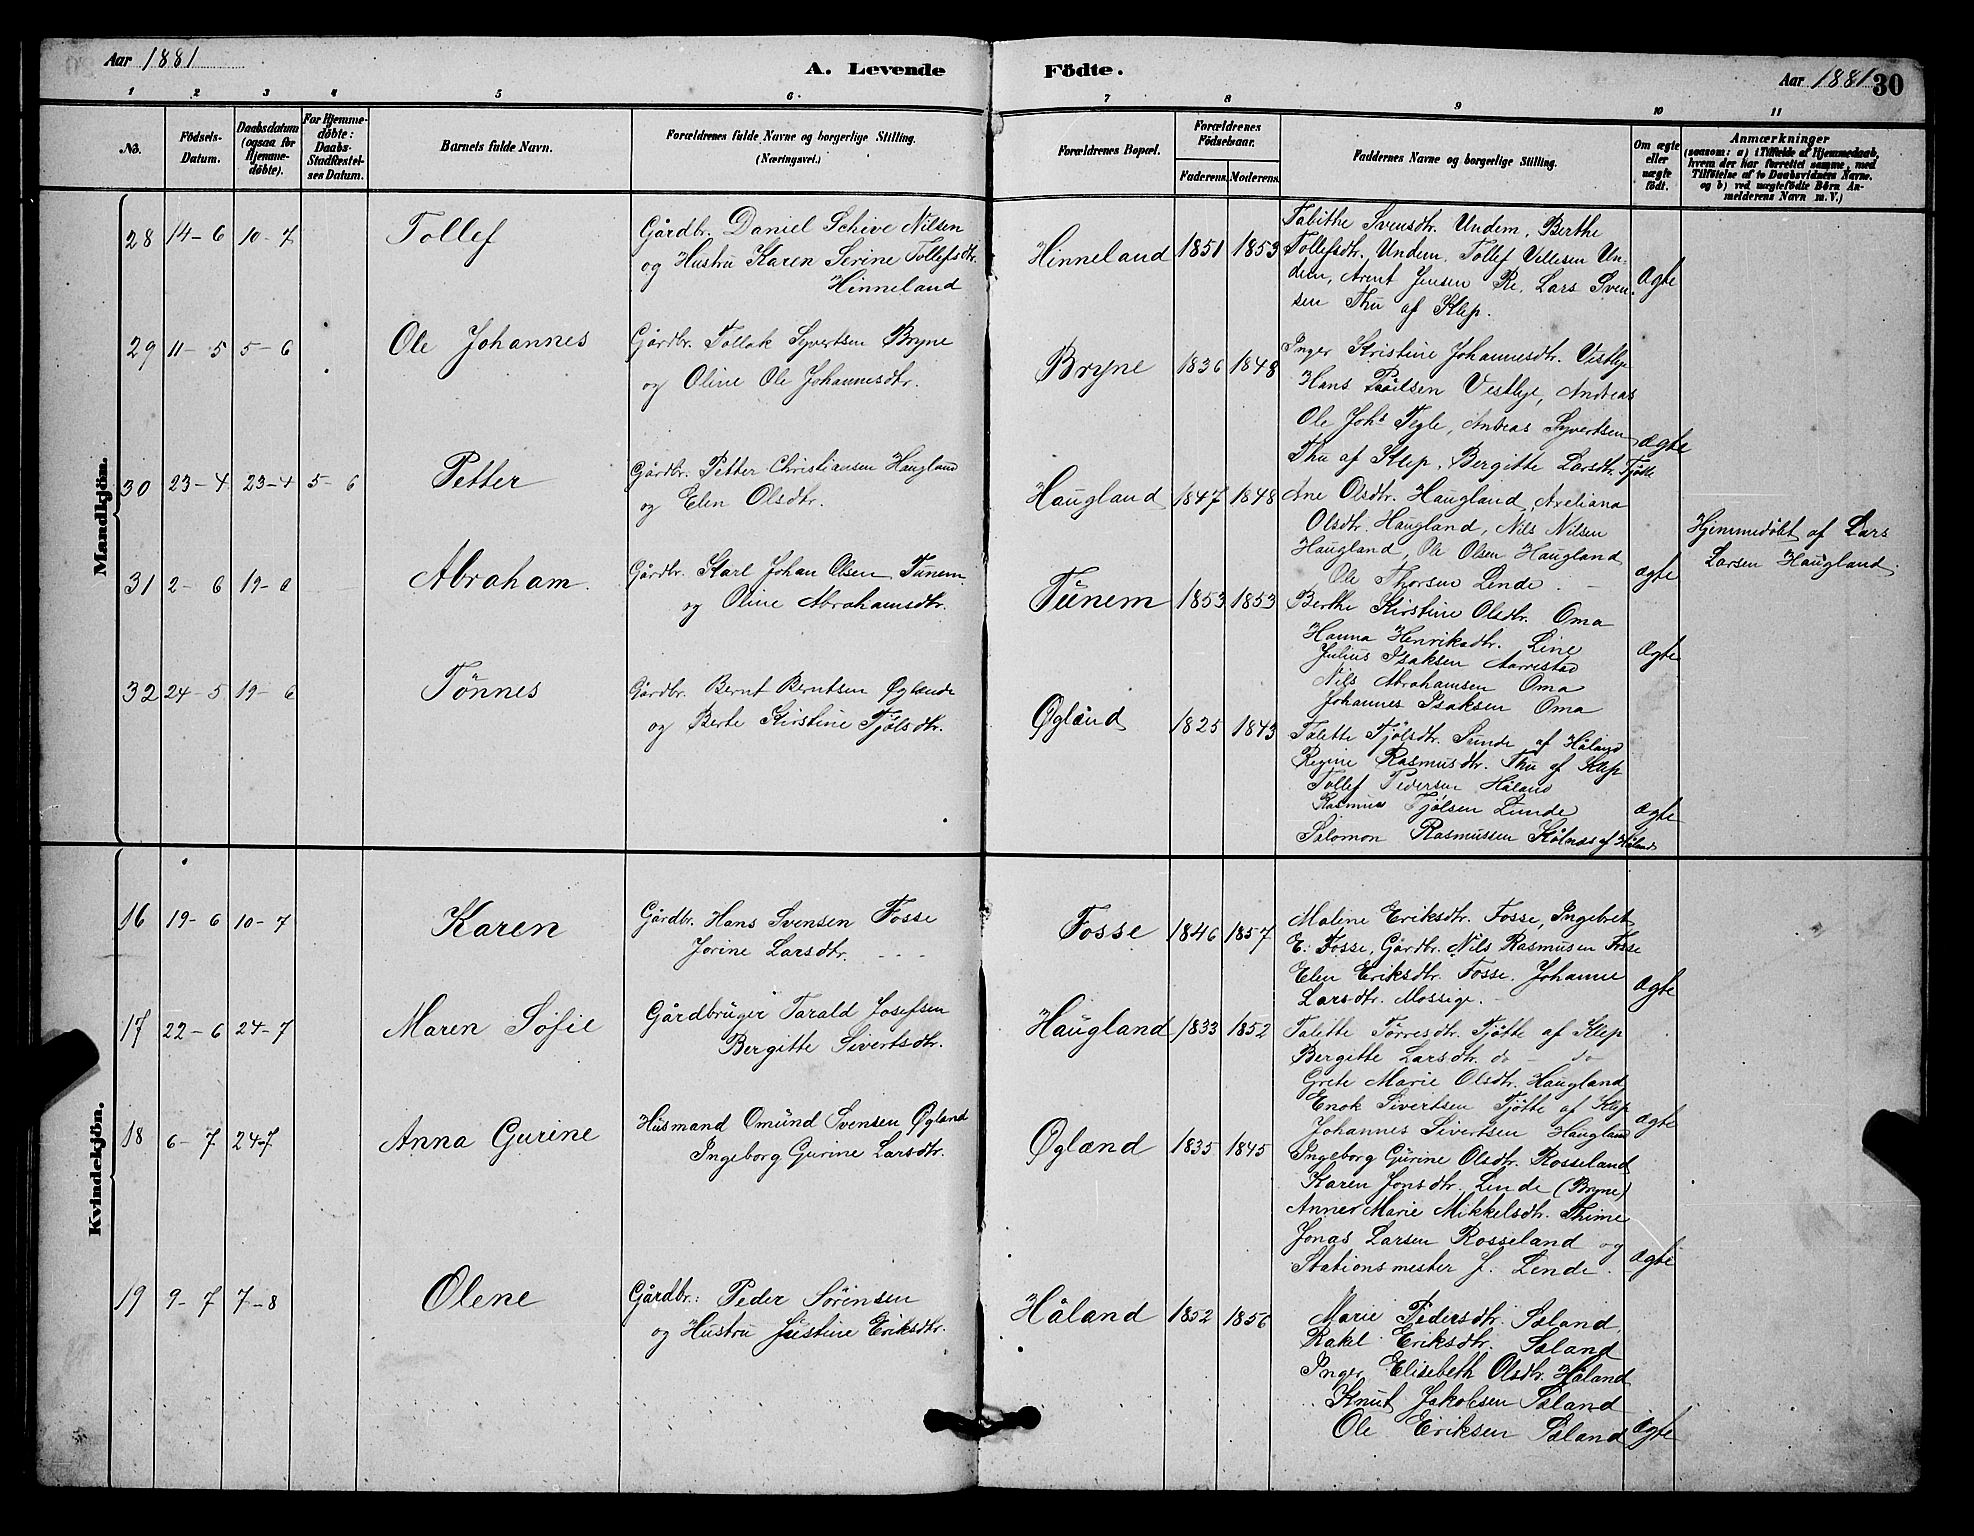 Aar 1881
A. Levende
Födte.
Aar 1881
30
1 2 3 4 5 6. 7 8 9 10 11
No.
Födsels-Datum.
Daabsdatum (ogsaa for Hjemme-döbte).
For Hjemme-döbte: Daabs-Stadfæstel-ses Datum.
Barnets fulde Navn.
Forældrenes fulde Navne og borgerlige Stilling.
(Næringsvei.)
Forældrenes Bopæl.
Forældrenes Födselsaar.
Faderens. Moderens.
Faddernes Navne og borgerlige Stilling.
Om ægte eller uægte födt.
Anmærkninger
(saasom: a) i Tilfælde af Hjemmedaab,
hvem der har forrettet samme, med
Tilföielse af to Daabsvidners Navne.
og b) ved uægtefödte Börn An-
melderens Navn m. V.)
Mandkjön.
28 14-6 10-7 Tollef
Gårdbr. Daniel Schive Nilsen
og Hustru Karen Serine Tollefsdtr.
Hinneland
Hinneland 1851 1853
Tabithe Svendsdtr. Undem, Berthe
Tollefsdtr. Undem. Tollef Villesen Un-
dem, Arent Jensen Re, Lars Sven-
sen Thu af Klep.
Ægte
29 11-5 5-6 Ole Johannes
Gårdbr. Tollak Syvertsen Bryne
og Oline Ole Johannesdtr.
Bryne 1836 1848
Inger Kristine Johannesdtr. Vestlye
Hans Paulsen Vestlye, Andreas
Ole Johs Tegle, Andreas Syvertsen
Thu af Klep, Bergitte Larsdtr. Tjøtte
ægte
30 23-4 23-4 5-6 Petter
Gårdbr. Petter Christiansen Haugland
og Elen Olsdtr.
Haugland 1847 1848
Ane Olsdtr. Haugland, Axeliana
Olsdtr. Haugland, Nils Nilsen
Haugland, Ole Olsen Haugland
Ole Thorsen Lende.
ægte
Hjemmedøbt af Lars
Larsen Haugland.
31 2-6 19-6 Abraham.
Gårdbr. Karl Johan Olsen Tunem
og Oline Abrahamsdtr.
Tunem 1853 1853
Berthe Kirstine Olsdtr. Oma
Hanna Henriksdtr. Line
Julius Isaksen Aarrestad
Nils Abrahamsen Oma
Johannes Isaksen Oma
Ægte
32 24-5 19-6 Tönnes
Gårdbr. Bernt Berntsen Øglænde
og Berte Kirstine Tjølsdtr.
Øgland 1825 1843
Talette Tjølsdtr. Sunde af Håland
Regine Rasmusdtr. Thu af Klep
Tollef Pedersen Håland
Rasmus Tjølsen Lunde
Salomon Rasmussen Kølnæs af Håland
ægte
Kvindekjön.
16 19-6 10-7 Karen
Gårdbr. Hans Svensen Fosse
Jorine Larsdtr.
Fosse 1846 1857
Malene Eriksdtr. Fosse, Ingebret
E: Fosse, Gårdbr. Nils Rasmusen Fosse
Elen Eriksdtr. Fosse. Johanne
Larsdtr. Mossige.
Ægte
17 22-6 24-7 Maren Sofie
Gårdbruger Tarald Josefsen
Bergitte Sivertsdtr.
Haugland 1833 1852
Talitte Torresdtr. Tjøtte af Klep
Bergitte Larsdtr. do - do
Grete Marie Olsdtr. Haugland
Enok Sivertsen Tjøtte af Klep
Johannes Sivertsen Haugland
ægte
18 6-7 24-7 Anna Gurine
Husmand Omund Svensen Øgland
Ingeborg Gurine Larsdtr.
Øgland 1835 1845
Ingeborg Gurine Olsdtr. Rosseland
Karen Jonsdtr. Lende (Bryne)
Anner Marie Mikkelsdtr. Thime
Jonas Larsen Rosseland og
Stationsmester J. Lende.
Ægte
19 9-7 7-8 Olene
Gårdbr.: Peder Sörensen
og Hustru Justine Eriksdtr.
Håland 1852 1856
Marie Pedersdtr. Sæland,
Rakel Eriksdtr. Sæland
Inger Elisebeth Olsdtr. Håland
Knut Jakobsen Sæland
Ole Eriksen Sæland
Ægte